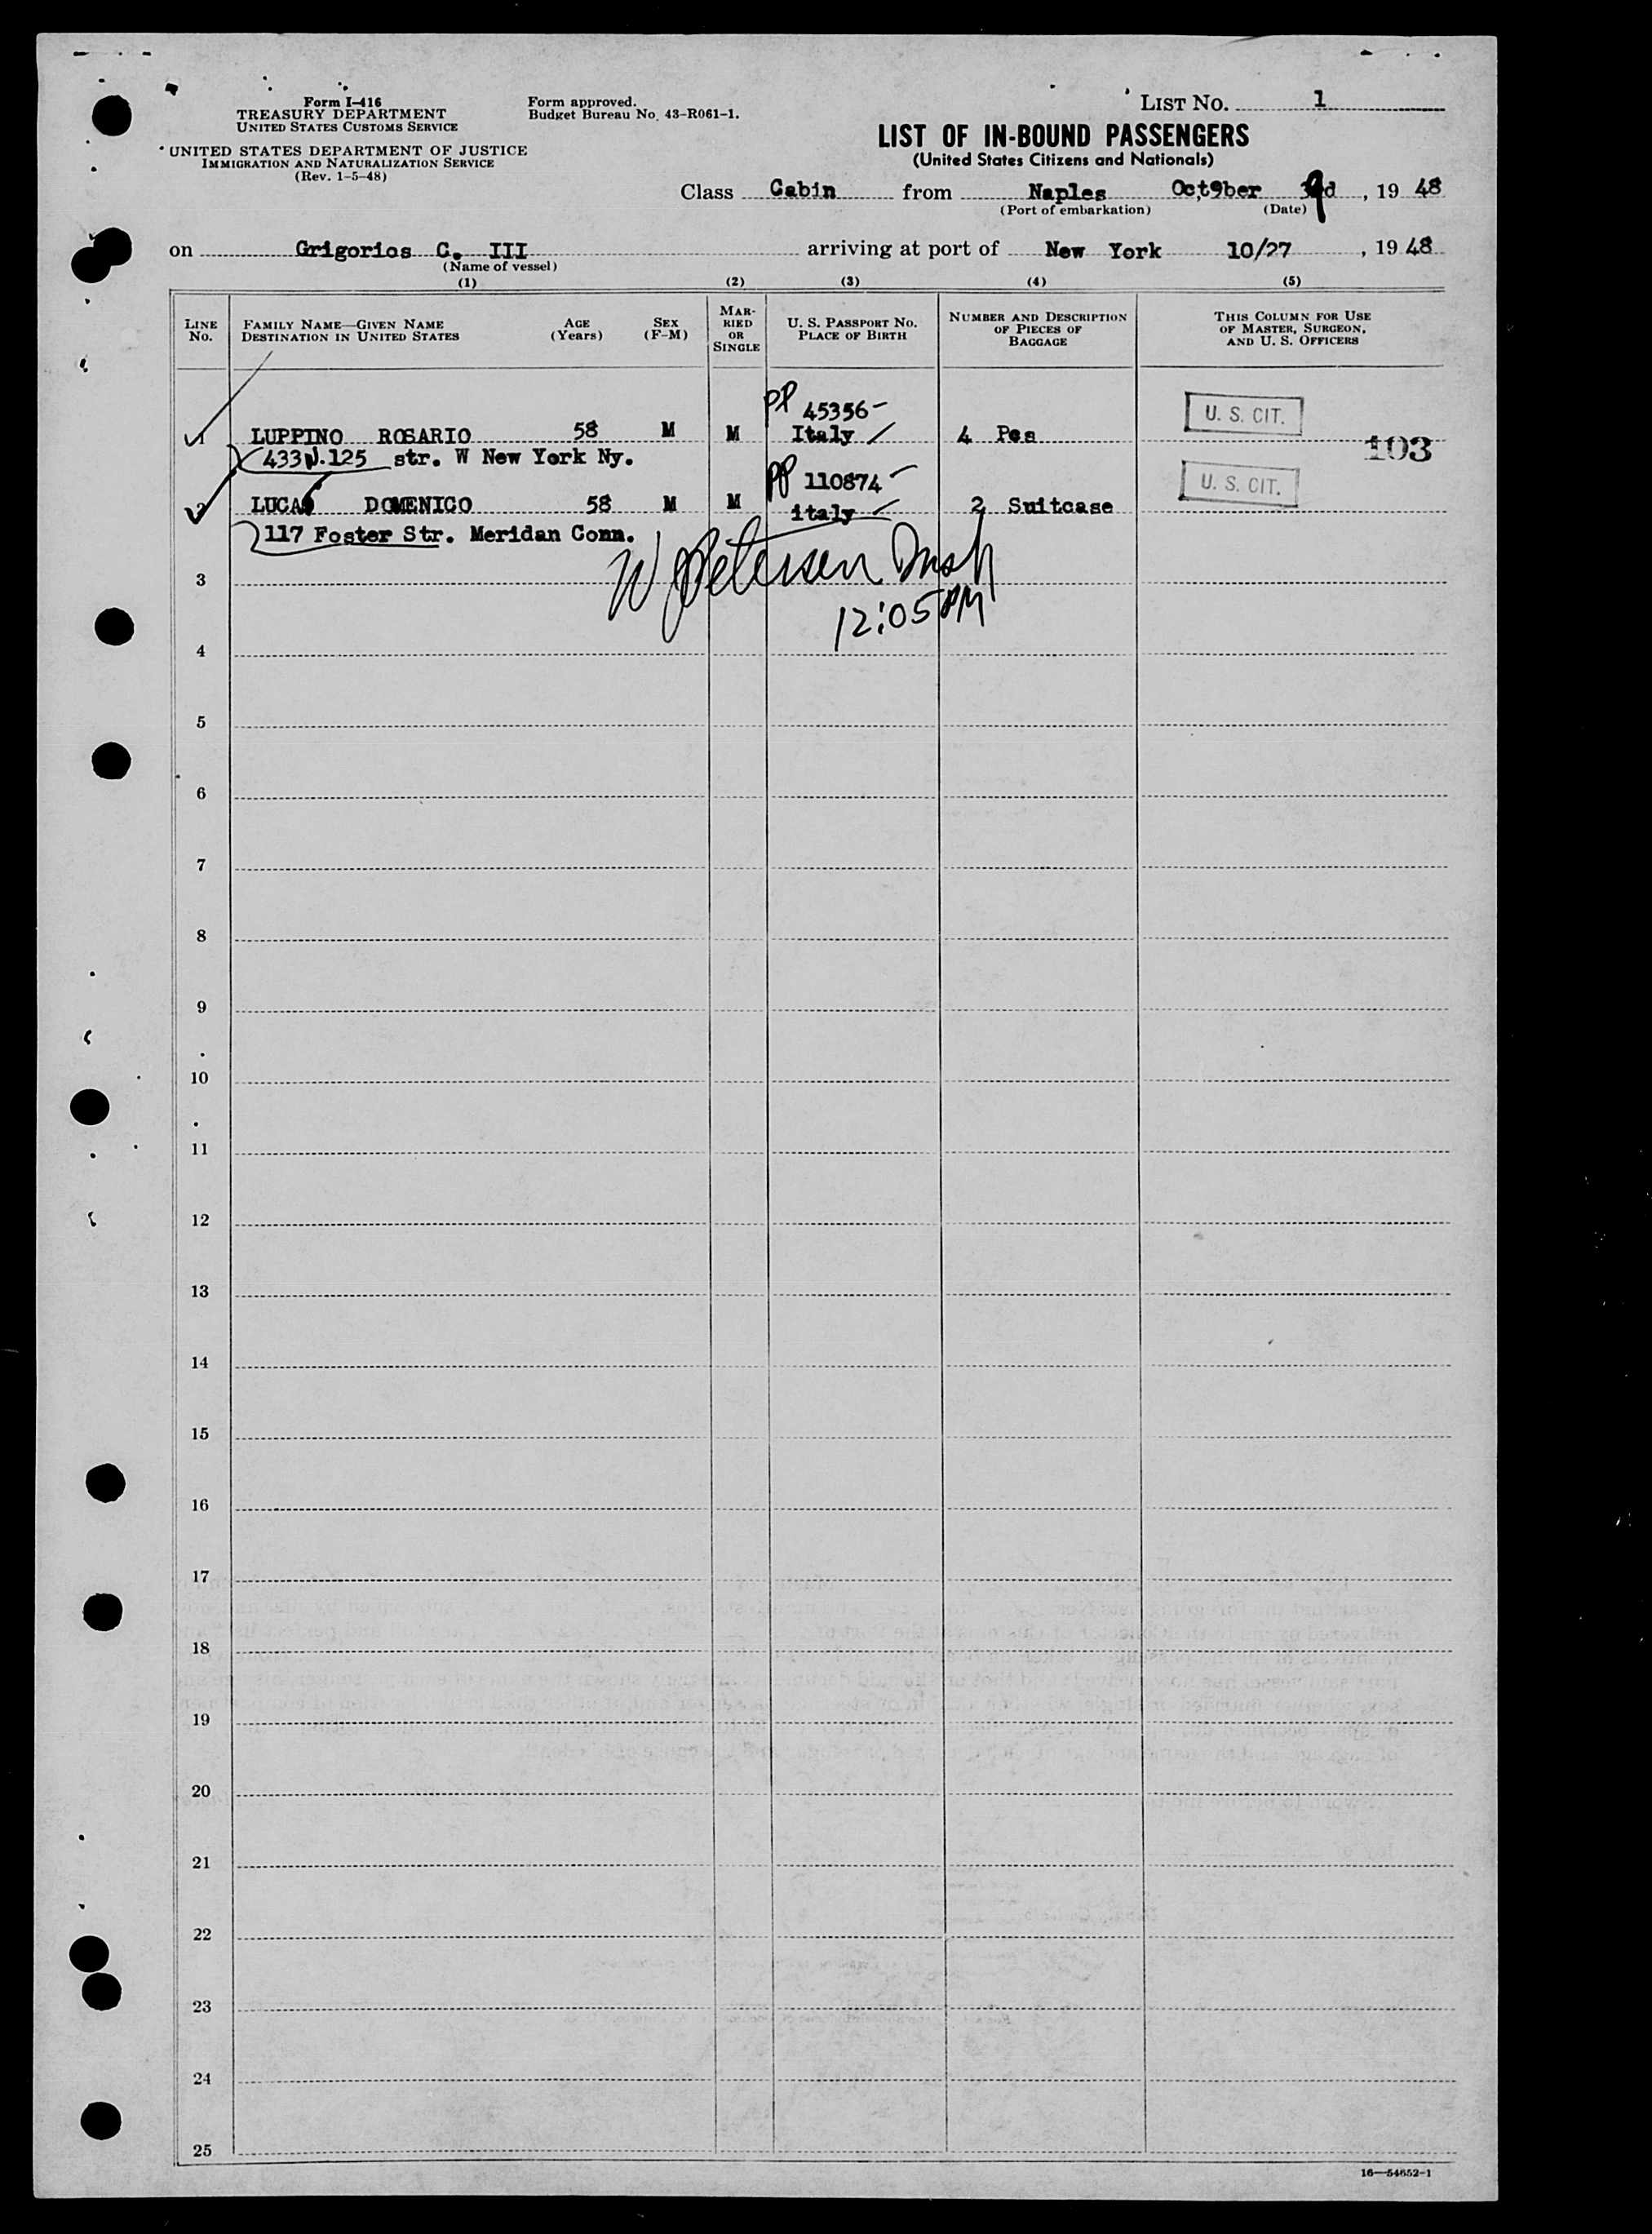 Form I-416
TREASURY DEPARTMENT
UNITED STATES CUSTOMS SERVICE
UNITED STATES DEPARTMENT OF JUSTICE
IMMIGRATION AND NATURALIZATION SERVICE
(Rev. 1-5-48)
Form approved.
Budget Bureau No. 43-R061-1.
LIST NO. 1
LIST OF IN-BOUND PASSENGERS
(United States Citizens and Nationals)
Class Cabin from Naples Oct,9ber 9, 19 48
(Port of embarkation) (Date)
on Grigorios C. III arriving at port of New York 10/27, 19 48
(Name of vessel)
(1) (2) (3) (4) (5)
LINE No. FAMILY NAME—GIVEN NAME DESTINATION IN UNITED STATES AGE (Years) SEX (F-M) MARRIED OR SINGLE U. S. PASSPORT NO. PLACE OF BIRTH NUMBER AND DESCRIPTION OF PIECES OF BAGGAGE THIS COLUMN FOR USE OF MASTER, SURGEON, AND U. S. OFFICERS
PP 45356 U. S. CIT.
1 LUPPINO ROSARIO 58 M M Italy 4 Pcs 103
433 W.125 str. W New York Ny.
PP 110874 U. S. CIT.
2 LUCA DOMENICO 58 M M italy 2 Suitcase
117 Foster Str. Meridan Conn.
W Petersen Insp
3
12:05 PM
4
5
6
7
8
9
10
11
12
13
14
15
16
17
18
19
20
21
22
23
24
25
16—54652-1